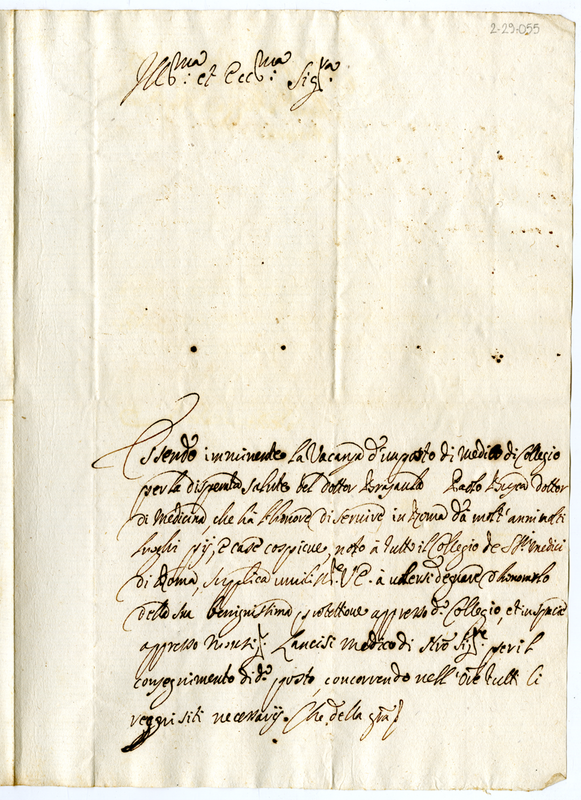 2-29-055
Ill.ma et Ecc.ma Sig.ra
Essendo imminente la Vacanza d'un posto di medico di Collegio
per la disperata salute del dottor Paolo dottor
di Medicina che hà l'honore di servire in Roma da molt'anni molti
luoghi pij, e case cospicue, noto à tutto il Collegio de SS.ri medici
di Roma, supplica umilm.te V.E. à volersi degnare d'honorarlo
della sua benignissima protettione appresso d.o Collegio, et in specie
appresso Monsig.r Lancisi medico di Nro Sig.re per il
conseguimento di d.o posto, concorrendo nell' Ore tutti li
requisiti necessarij. Che della gra